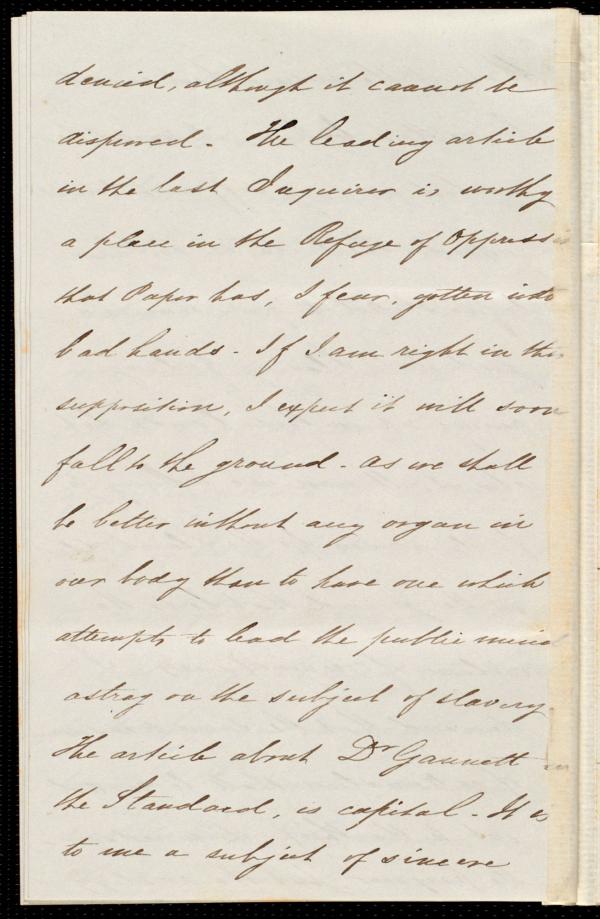 denied, although it cannot be
disproved. The leading article
in the last Inquirer is worthy
a place in the Refuge of Oppression
that Paper has, I fear, gotten into
bad hands. If I am right in this
supposition, I expect it will soon
fall to the ground. as we shall
be better without any organ in
our body than to have one which
attempts to lead the public mind
astray on the subject of slavery.
The article about Dr Gannett in
the Standard, is capital. It is
to me a subject of sincere